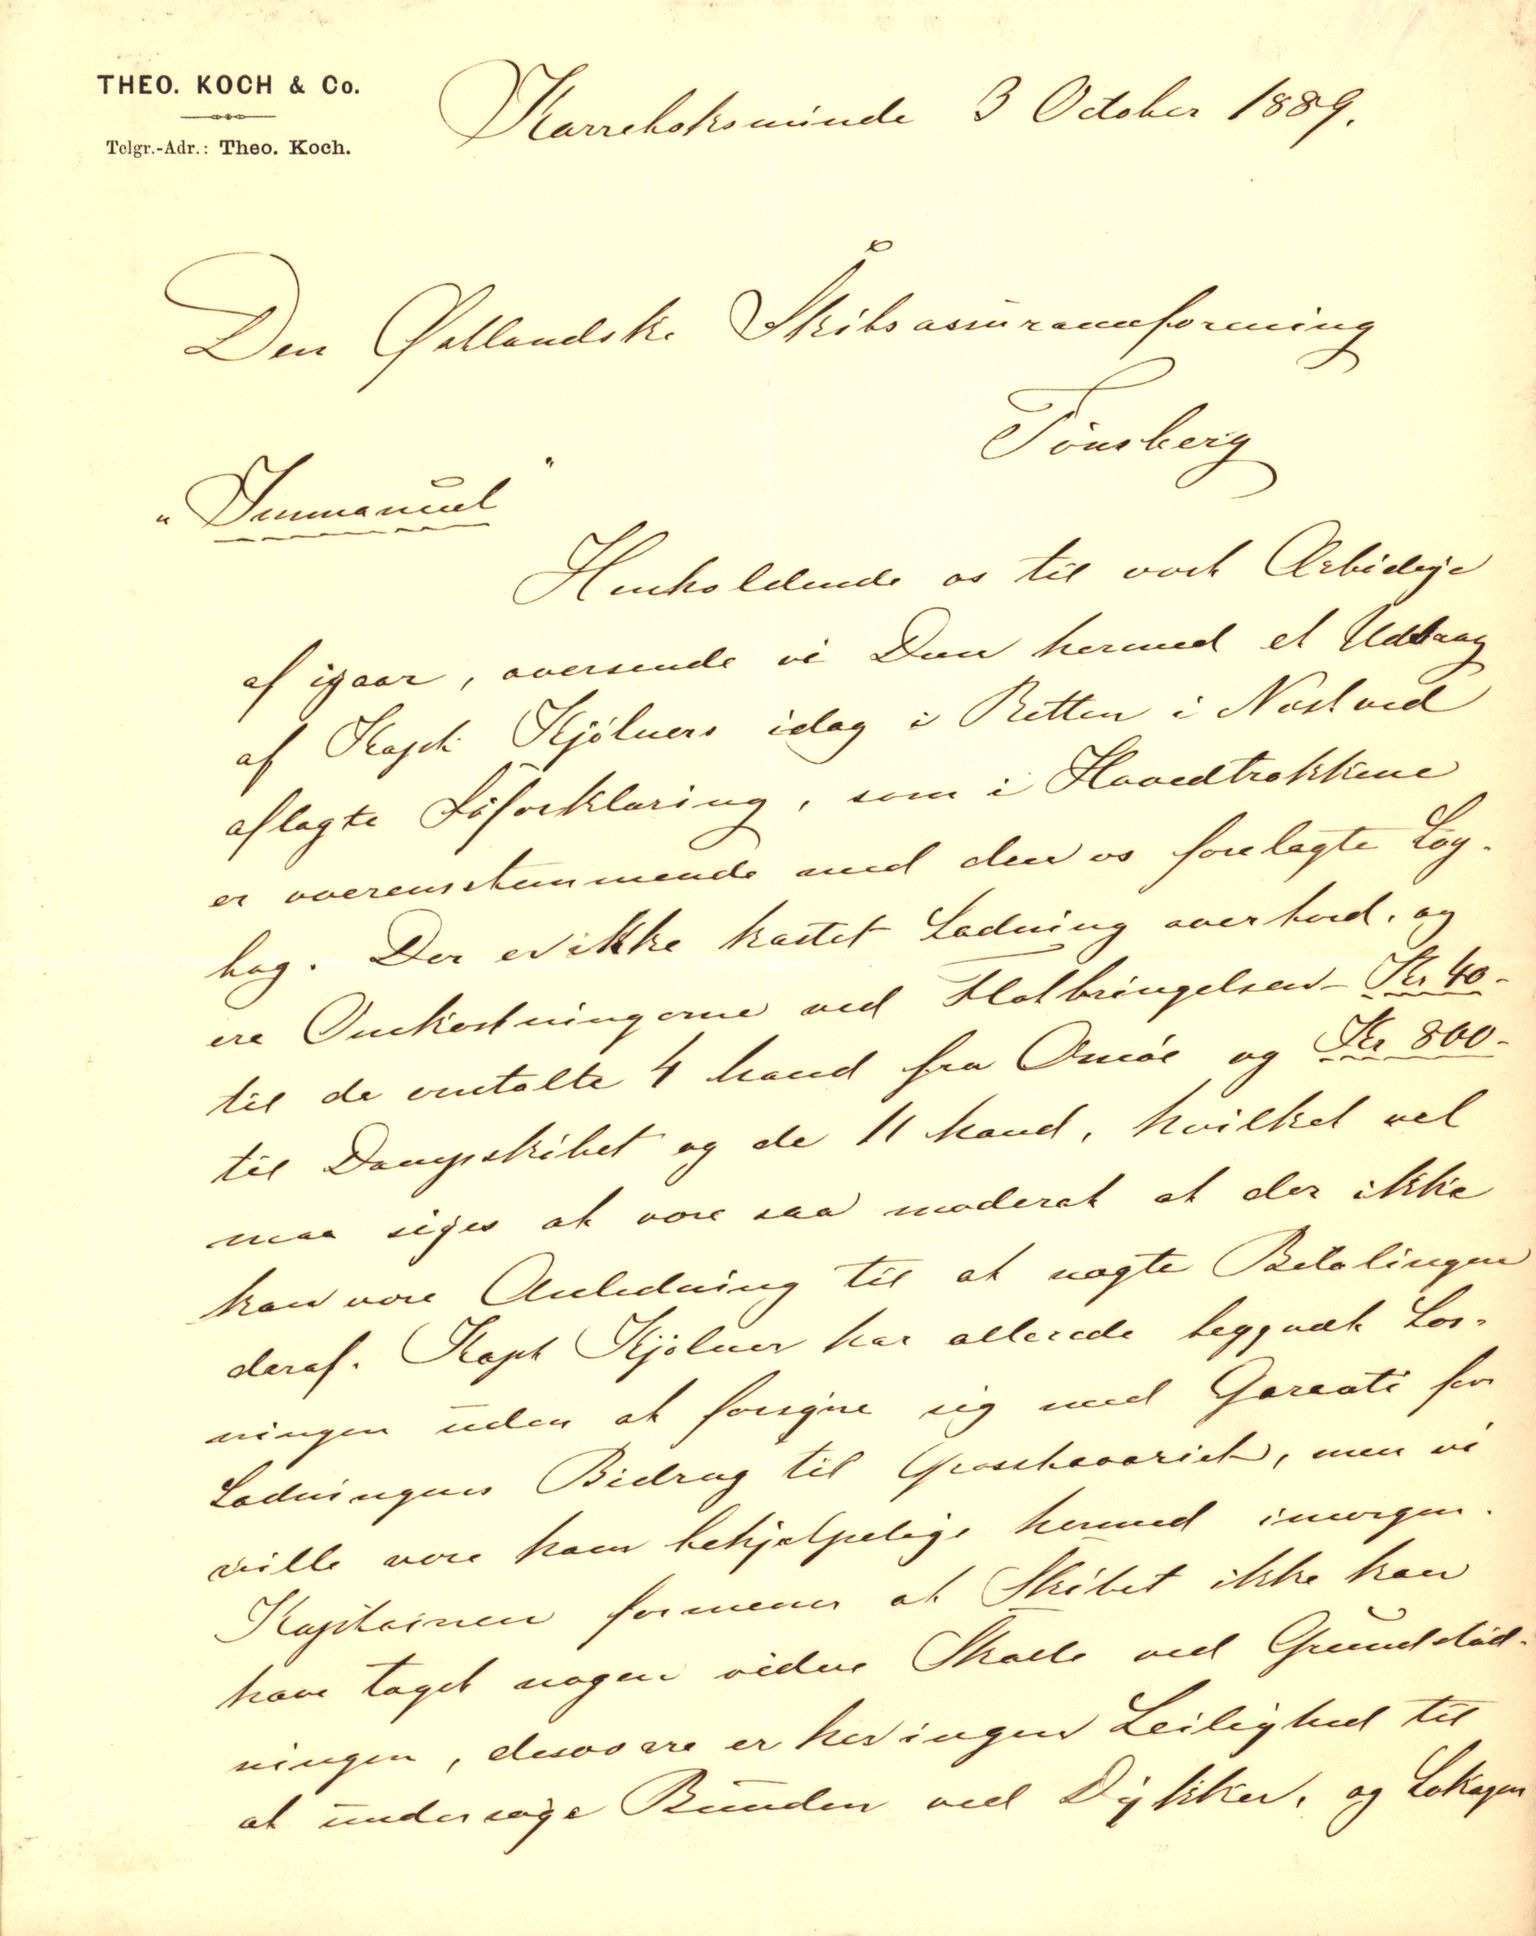 THEO. KOCH & Co.
Telgr.-Adr.: Theo. Koch.
Karrebæksminde 3 October 1889.
Den Østlandske Skibsassuranceforening
Tönsberg
"Immanuel"
Henholdende os til vort Ærbødige
af igaar, oversende vi Dem hermed et Uddrag
af Kapt Kjölners idag i Retten i Næstved
aflagte Söforklaring, som i Hovedtrækkene
er overensstemmende med den os forelagte Log-
bog. Der er ikke kastet Ladning overbord, og
ere Omkostningerne ved Flotbringelsen Kr 40-
til de omtalte 4 Mand fra Omöe og Kr 800-
til Dampskibet og de 11 Mand, hvilket vel
maa siges at være saa moderat at der ikke
kan være Anledning til at nægte Betalingen
deraf. Kapt Kjölner har allerede begyndt Los-
ningen uden at forsyne sig med Garanti for
Ladningens Bidrag til Grosshavariet, men vi
ville være ham behjælpelige hermed imorgen.
Kapitainen formener at Skibet ikke kan
have taget nogen videre Skade ved Grundstöd-
ningen, desværre er her ingen Leilighed til
at undersöge Bunden ved Dykker, og Lækagen